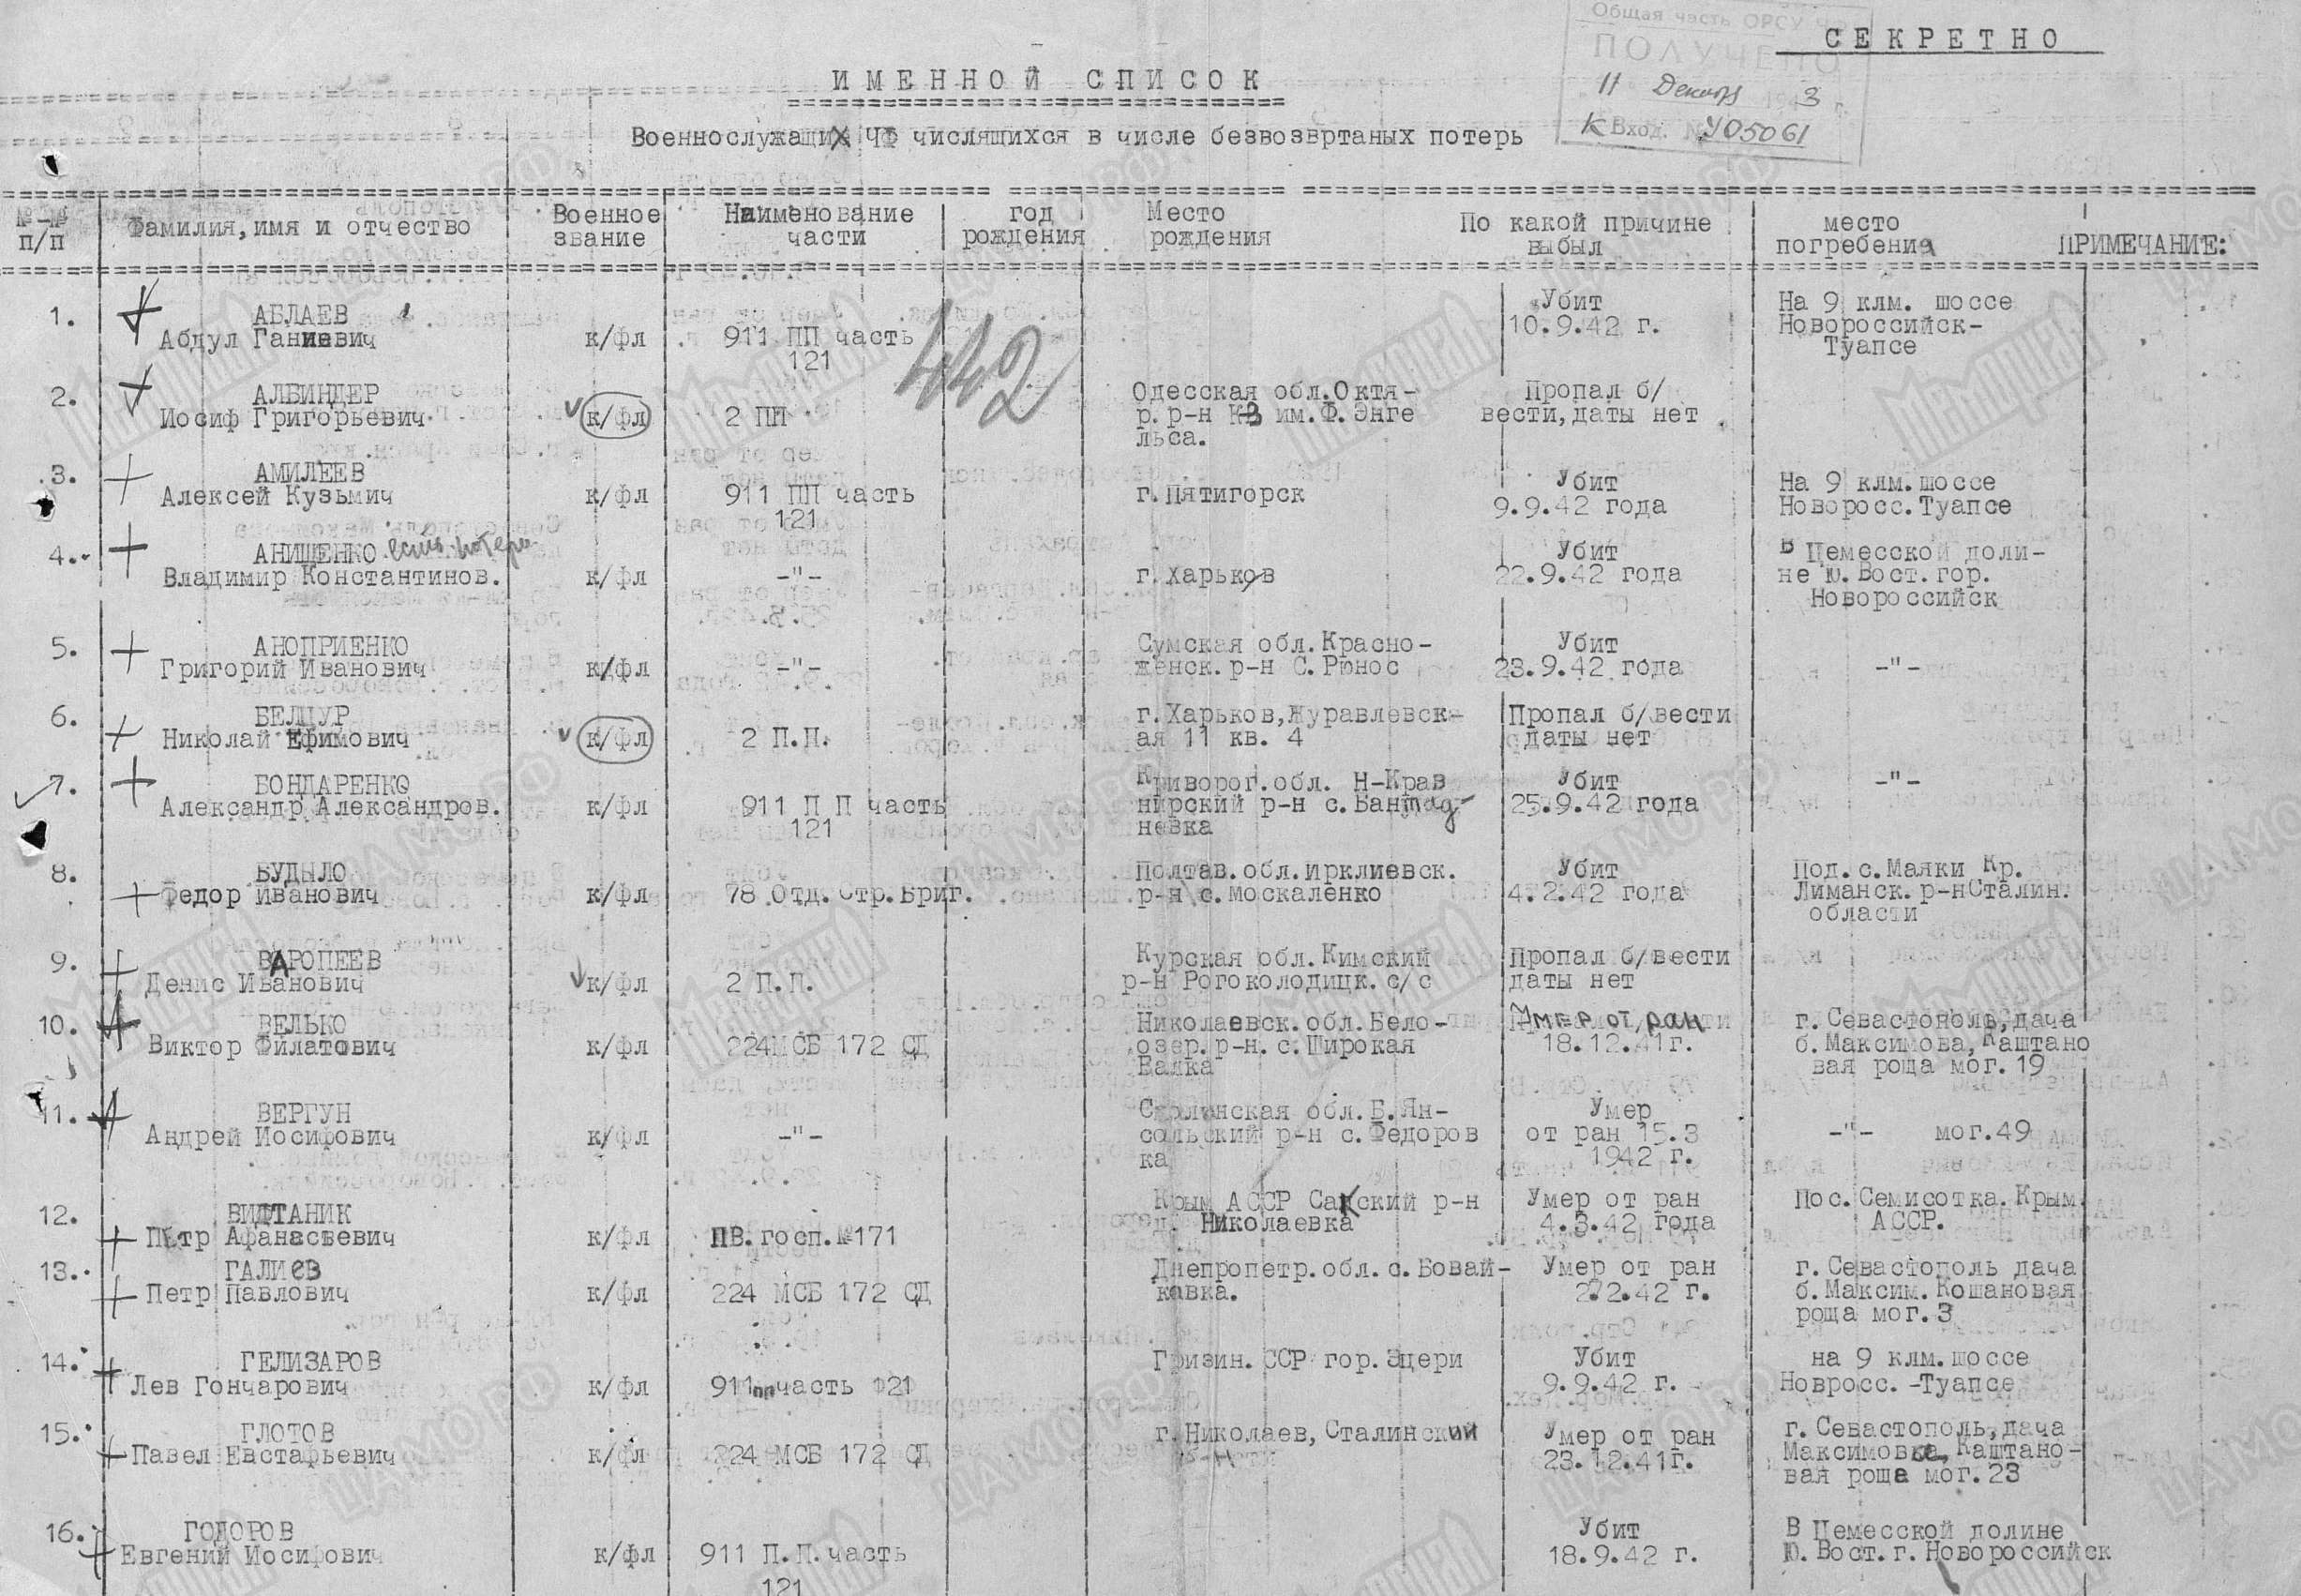 Общая часть ОРСУ ЧФ
ПОЛУЧЕНО
11 Декабр 1943 г.
К Вход. № 405061
СЕКРЕТНО
ИМЕННОЙ СПИСОК
Военнослужащих ЧФ числящихся в числе безвозвртаных потерь
№-№ п/п
Фамилия, имя и отчество
Военное звание
Наименование части
год рождения
Место рождения
По какой причине выбыл
место погребения
ПРИМЕЧАНИЕ:
442
1. АБЛАЕВ
Абдул Ганиевич
к/фл
911 ПП часть
121
Убит
10.9.42 г.
На 9 клм. шоссе
Новороссийск-
Туапсе
2. АЛБИНДЕР
Иосиф Григорьевич
к/фл
2 ПП
Одесская обл.Октя-
р. р-н КВ им.Ф.Энге
льса.
Пропал б/
вести, даты нет
3. АМИЛЕЕВ
Алексей Кузьмич
к/фл
911 ПП часть
121
г.Пятигорск
Убит
9.9.42 года
На 9 клм.шоссе
Новоросс.Туапсе
4. АНИЩЕНКО есть потери
Владимир Константинов.
к/фл
-"-
г.Харьков
Убит
22.9.42 года
В Цемесской доли-
не Ю.Вост.гор.
Новороссийск
5. АНОПРИЕНКО
Григорий Иванович
к/фл
-"-
Сумская обл.Красно-
женск.р-н С.Рюнос
Убит
23.9.42 года
-"-
6. БЕЛЦУР
Николай Ефимович
к/фл
2 П.П.
г.Харьков,Журавлевск-
ая 11 кв. 4
Пропал б/вести
даты нет
7. БОНДАРЕНКО
Александр Александров.
к/фл
911 П П часть
121
Криворог.обл. Н-Крав
нирский р-н с.
невка
Убит
25.9.42 года
-"-
8. БУДЫЛО
Федор Иванович
к/фл
78 Отд.Стр.Бриг.
Полтав.обл.Ирклиевск.
р-н с.Москаленко
Убит
4.2.42 года
Под.с.Маяки Кр.
Лиманск.р-нСталин.
области
9. ВАРОПЕЕВ
Денис Иванович
к/фл
2 П.П.
Курская обл.Кимский
р-н Рогоколодицк.с/с
Пропал б/вести
даты нет
10. ВЕЛЬКО
Виктор Филатович
к/фл
224МСБ 172 СД
Николаевск.обл.Бело-
озер.р-н.с.Широкая
Балка
Умер от ран
18.12.41г.
г.Севастополь,дача
б.Максимова,Каштано
вая роща мог.19
11. ВЕРГУН
Андрей Иосифович
к/фл
-"-
Сталинская обл.Б.Ян-
сольский р-н с.Федоров
ка
Умер
от ран 15.3
1942 г.
-"- мог.49
12. ВИДТАНИК
Петр Афанасьевич
к/фл
ПВ.госп.№171
Крым АССР Сакский р-н
д. Николаевка
Умер от ран
4.3.42 года
Пос.Семисотка.Крым.
АССР.
13. ГАЛИЕВ
Петр Павлович
к/фл
224 МСБ 172 СД
Днепропетр.обл.с.Бовай-
кавка.
Умер от ран
2.2.42 г.
г.Севастополь дача
б.Максим.Кошановая
роща мог.3
14. ГЕЛИЗАРОВ
Лев Гончарович
к/фл
911 пп часть 121
Гризин.ССР гор.Эцери
Убит
9.9.42 г.
на 9 клм.шоссе
Новросс.-Туапсе
15. ГЛОТОВ
Павел Евстафьевич
к/фл
224 МСБ 172 СД
г.Николаев,Сталинский
Умер от ран
23.12.41г.
г.Севастополь,дача
Максимовка,Каштано-
вая роща мог.23
16. ГОДОРОВ
Евгений Иосифович
к/фл
911 П.П.часть
121
Убит
18.9.42 г.
В Цемесской долине
Ю.Вост.г.Новороссийск